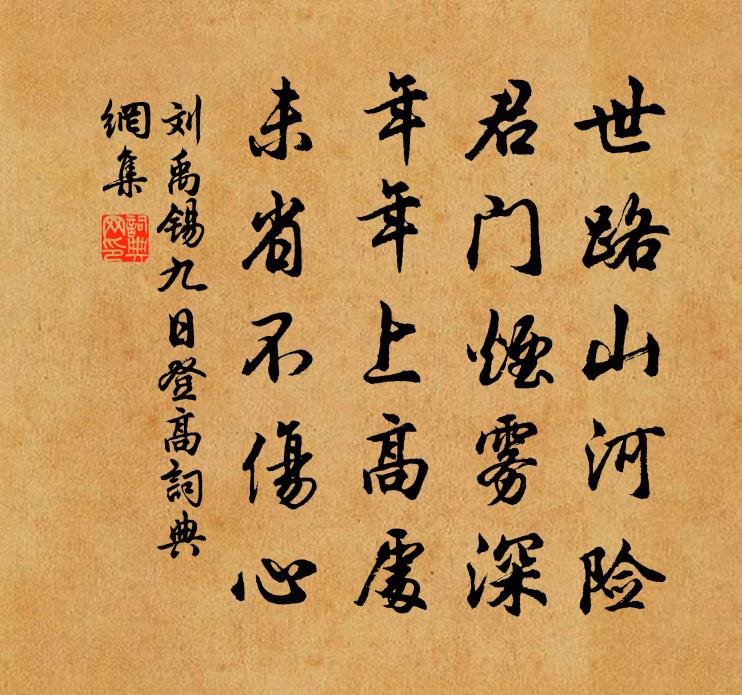 世路山河险
君门煙雾深
年年上高處
未省不傷心
刘禹锡九日登高詞典
網集
詞典网印